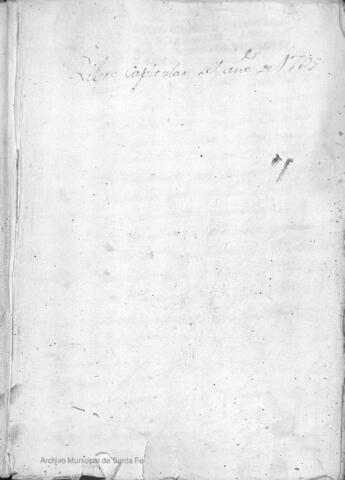 Libro Capitular del año de 1735
Archivo Municipal de Santa Fe